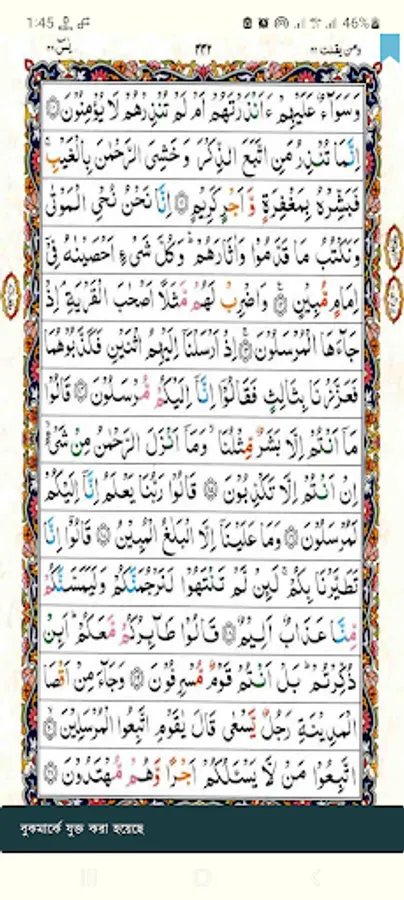 1:45 46%
يٰسٓ ٣٦ ٤٤٢ ومن يقنت ٢٢
وَسَوَآءٌ عَلَيْهِمْ ءَاَنْذَرْتَهُمْ اَمْ لَمْ تُنْذِرْهُمْ لَا يُؤْمِنُوْنَ ۝
اِنَّمَا تُنْذِرُ مَنِ اتَّبَعَ الذِّكْرَ وَ خَشِىَ الرَّحْمٰنَ بِالْغَيْبِ ۚ
فَبَشِّرْهُ بِمَغْفِرَةٍ وَّ اَجْرٍ كَرِيْمٍ ۝ اِنَّا نَحْنُ نُحْىِ الْمَوْتٰى
وَنَكْتُبُ مَا قَدَّمُوْا وَاٰثَارَهُمْ ؕ وَكُلَّ شَىْءٍ اَحْصَيْنٰهُ فِىْٓ
اِمَامٍ مُّبِيْنٍ ۝ وَاضْرِبْ لَهُمْ مَّثَلًا اَصْحٰبَ الْقَرْيَةِ ۘ اِذْ
جَآءَهَا الْمُرْسَلُوْنَ ۝ اِذْ اَرْسَلْنَاۤ اِلَيْهِمُ اثْنَيْنِ فَكَذَّبُوْهُمَا
فَعَزَّزْنَا بِثَالِثٍ فَقَالُوْۤا اِنَّاۤ اِلَيْكُمْ مُّرْسَلُوْنَ ۝ قَالُوْا
مَاۤ اَنْتُمْ اِلَّا بَشَرٌ مِّثْلُنَا ۙ وَمَاۤ اَنْزَلَ الرَّحْمٰنُ مِنْ شَىْءٍ ۙ
اِنْ اَنْتُمْ اِلَّا تَكْذِبُوْنَ ۝ قَالُوْا رَبُّنَا يَعْلَمُ اِنَّاۤ اِلَيْكُمْ
لَمُرْسَلُوْنَ ۝ وَمَا عَلَيْنَاۤ اِلَّا الْبَلٰغُ الْمُبِيْنُ ۝ قَالُوْۤا اِنَّا
تَطَيَّرْنَا بِكُمْ ۚ لَئِنْ لَّمْ تَنْتَهُوْا لَنَرْجُمَنَّكُمْ وَلَيَمَسَّنَّكُمْ
مِّنَّا عَذَابٌ اَلِيْمٌ ۝ قَالُوْا طَآئِرُكُمْ مَّعَكُمْ ؕ اَئِنْ
ذُكِّرْتُمْ ؕ بَلْ اَنْتُمْ قَوْمٌ مُّسْرِفُوْنَ ۝ وَجَآءَ مِنْ اَقْصَا
الْمَدِيْنَةِ رَجُلٌ يَّسْعٰى قَالَ يٰقَوْمِ اتَّبِعُوا الْمُرْسَلِيْنَ ۝
اتَّبِعُوْا مَنْ لَّا يَسْـَٔلُكُمْ اَجْرًا وَّهُمْ مُّهْتَدُوْنَ ۝
বুকমার্কে যুক্ত করা হয়েছে